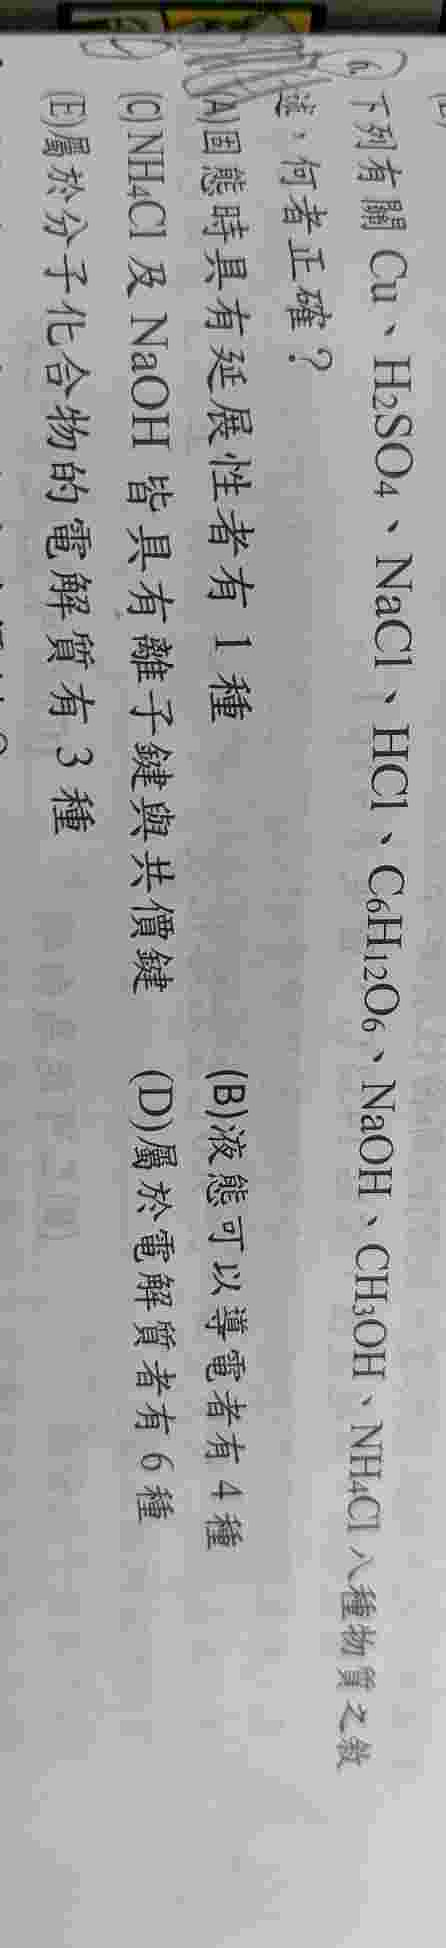 6. 下列有關 Cu、H₂SO₄、NaCl、HCl、C₆H₁₂O₆、NaOH、CH₃OH、NH₄Cl 八種物質之敘
述，何者正確？
(A)固態時具有延展性者有 1 種 (B)液態可以導電者有 4 種
(C)NH₄Cl 及 NaOH 皆具有離子鍵與共價鍵 (D)屬於電解質者有 6 種
(E)屬於分子化合物的電解質有 3 種